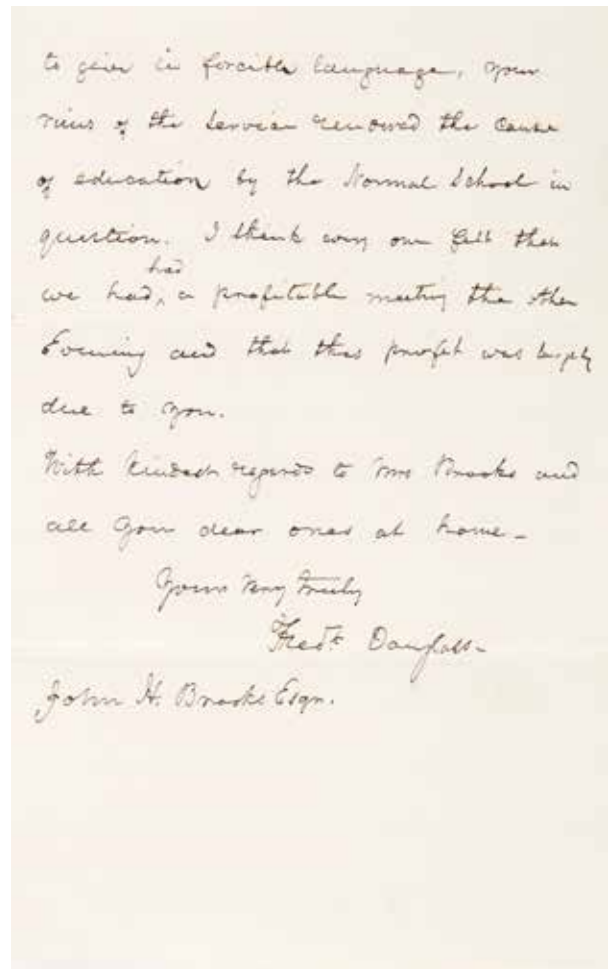 to give in forcible language, your
views of the service rendered the cause
of education by the Normal School in
question. I think every one felt that
had
we had, a profitable meeting the other
Evening and that this profit was largely
due to you.
With kindest regards to Mrs Brooks and
all your dear ones at home -
Yours very truly
Fredk Douglass -
John H. Brooks Esqr.